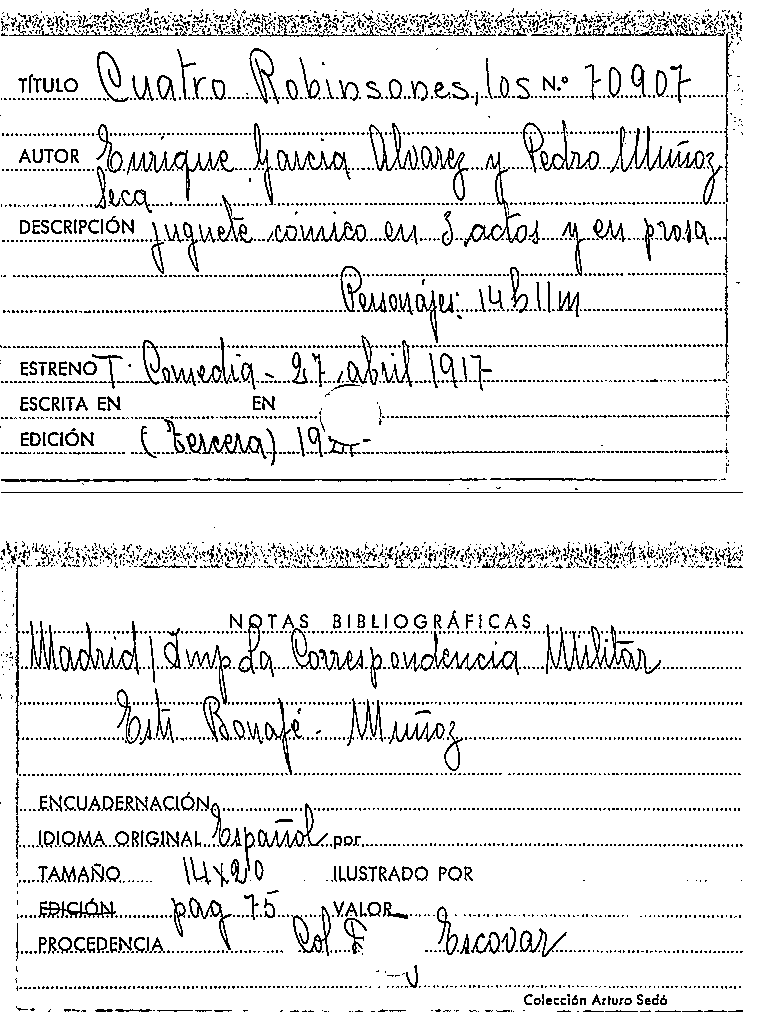 TÍTULO Cuatro Robinsones, los N.º 70907
AUTOR Enrique García Alvarez y Pedro Muñoz
Seca
DESCRIPCIÓN juguete cómico en 3 actos y en prosa
Personajes: 14 h 11 m
ESTRENO T. Comedia - 27 abril 1917
ESCRITA EN EN
EDICIÓN (tercera) 19
NOTAS BIBLIOGRÁFICAS
Madrid / Imp La Correspondencia Militar
Estr Bonafé - Muñoz
ENCUADERNACIÓN
IDIOMA ORIGINAL Español por
TAMAÑO 14x20 ILUSTRADO POR
EDICIÓN pag 75 VALOR
PROCEDENCIA Col Escovar
Colección Arturo Sedó